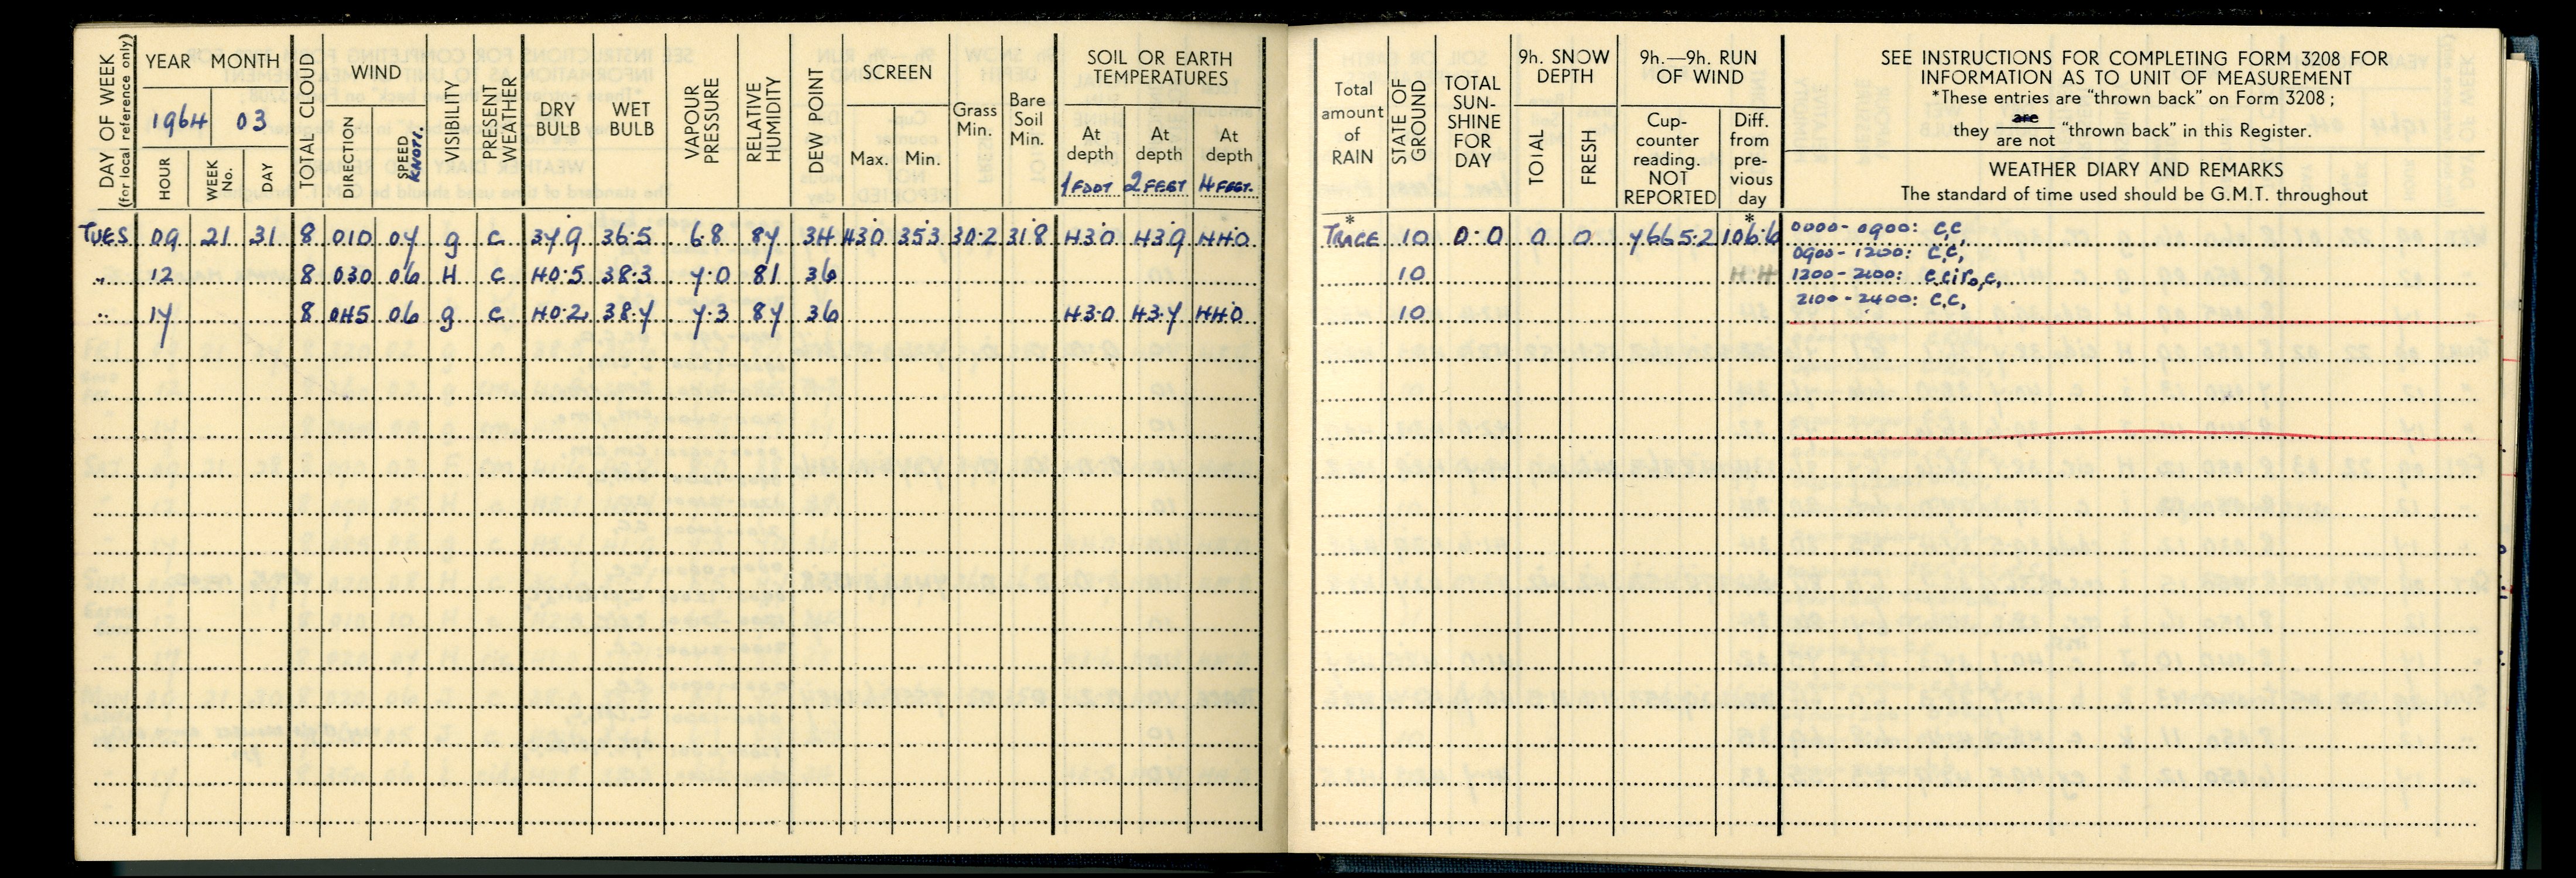 DAY OF WEEK (for local reference only)
YEAR MONTH
1964 03
HOUR WEEK No. DAY
TOTAL CLOUD
WIND
DIRECTION SPEED KNOTS.
VISIBILITY
PRESENT WEATHER
DRY BULB
WET BULB
VAPOUR PRESSURE
RELATIVE HUMIDITY
DEW POINT
SCREEN
Max. Min.
Grass Min.
Bare Soil Min.
SOIL OR EARTH TEMPERATURES
At depth 1 FOOT
At depth 2 FEET
At depth 4 FEET.
Total amount of RAIN
STATE OF GROUND
TOTAL SUN-SHINE FOR DAY
9h. SNOW DEPTH
TOTAL FRESH
9h.—9h. RUN OF WIND
Cup-counter reading. NOT REPORTED
Diff. from pre-vious day
SEE INSTRUCTIONS FOR COMPLETING FORM 3208 FOR
INFORMATION AS TO UNIT OF MEASUREMENT
*These entries are "thrown back" on Form 3208 ;
they are / are not "thrown back" in this Register.
WEATHER DIARY AND REMARKS
The standard of time used should be G.M.T. throughout
TUES 09 21 31 8 010 07 g c 37.9 36.5 6.8 87 34 43.0 35.3 30.2 31.8 43.0 43.9 44.0 * TRACE 10 0.0 0 0 7665.2 * 106.6
" 12 8 030 06 H c 40.5 38.3 7.0 81 36 10
" 17 8 045 06 g c 40.2 38.7 7.3 87 36 43.0 43.7 44.0 10
0000-0900: c,c,
0900-1200: c,c,
1200-2100: c,c,
2100-2400: c,c,